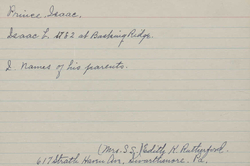 Prince Isaac.
Isaac L. 1782 at Basking Ridge.
I names of his parents.
(Mrs. S.G.) Edith K. Rutherford
617 Strath Haven Ave, Swarthmore, Pa.